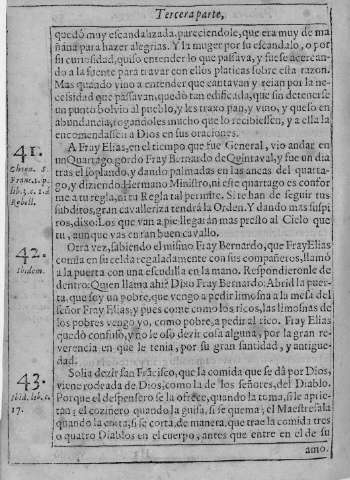 Tercera parte,
quedó muy escandalizada, pareciendole, que era muy de ma-
ñana para hazer alegrias. Y la muger por su escandalo, o por
su curiosidad, quiso entender lo que passava, y fuese acercan-
do a la fuente para travar con ellos platicas sobre esta razon.
Mas quando vino a entender que cantavan y reian por la ne-
cessidad que passavan, quedò tan edificada, que sin detenerse
un punto bolvio al pueblo, y les traxo pan, y vino, y queso en
abundancia, rogandoles mucho que lo recibiessen, y a ella la
encomendassen a Dios en sus oraciones.
41.
A Fray Elias, en el tiempo que fue General, vio andar en
un Quartago gordo Fray Bernardo de Quintaval, y fue un dia
tras el soplando, y dando palmadas en las ancas del quarta-
go, y diziendo: Hermano Ministro, ni este quartago es confor-
me a tu regla, ni tu Regla tal permite. Si te han de seguir tus
subditos, gran cavalleriza tendrá la Orden. Y dando mas suspi-
ros, dixo: Los que van a pie llegarán mas presto al Cielo que
tu, aunque vas en tan buen cavallo.
Chron. S.
Francis. p.
lib. 5. c. 2. d
42.
Otra vez, sabiendo el mismo Fray Bernardo, que Fray Elias
comia en su celda regaladamente con sus compañeros, llamó
a la puerta con una escudilla en la mano. Respondieronle de
dentro: Quien llama ahi? Dixo Fray Bernardo: Abrid la puer-
ta, que soy un pobre, que vengo a pedir limosna a la mesa del
señor Fray Elias, y pues come como los ricos, las limosnas de
los pobres vengo yo, como pobre, a pedir al rico. Fray Elias
quedò confuso, y no le osó dezir cosa alguna, por la gran re-
verencia en que le tenia, por su gran santidad, y antigue-
dad.
Ibidem.
43.
Solia dezir san Frãcisco, que la comida que se dá por Dios,
viene rodeada de Dios, como la de los señores, del Diablo.
Porque el despensero se la ofrece, quando la toma, si le aprie-
tan; el cozinero quando la guisa, si se quema; el Maestresala
quando la corta, si se corta, de manera, que trae la comida tres
o quatro Diablos en el cuerpo, antes que entre en el de su
Ibid. lib. 1. c.
17.
amo.